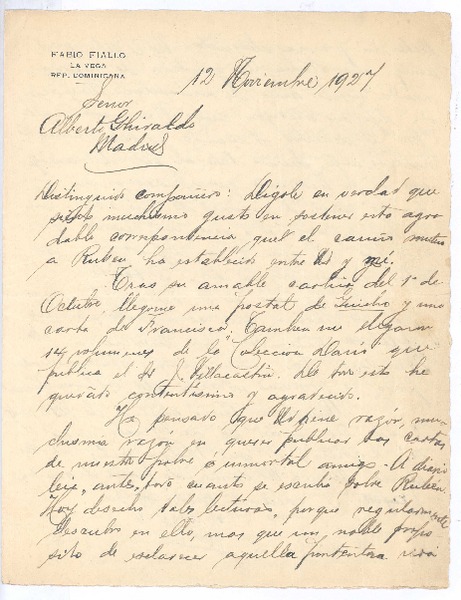 FABIO FIALLO
LA VEGA
REP. DOMINICANA
12 Noviembre, 1927
Señor
Alberto Ghiraldo
Madrid
Distinguido compañero: Dígole en verdad que
siento muchísimo gusto en sostener esta agra
dable correspondencia que el cariño mutuo
a Rubén ha establecido entre Ud y yo.
Tras su amable cartica del 1º de
Octubre, llegome una postal de y una
carta de Francisca. Tambien me llegaron
14 volumenes de la "Coleccion Dario" que
publica el Sr J. Villacastin. De todo esto he
quedado contentísimo y agradecido.
He pensado que Ud tiene razón, mu
chísima razon en querer publicar las cartas
de nuestro pobre é inmortal amigo. A diario
leía, antes, todo cuanto se escribia sobre Rubén.
Hoy desecho tales lecturas, porque regularmente
descubro en ello, mas que un noble propo
sito de esclarecer aquella portentosa vida